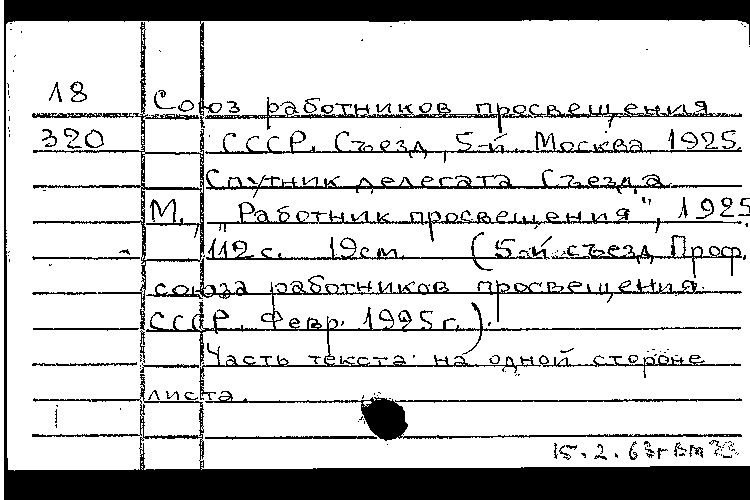 18 Союз работников просвещения
320 СССР. Съезд, 5-й. Москва 1925.
Спутник делегата съезда.
М., "Работник просвещения", 1925.
112 с. 19 см. (5-й съезд Проф.
союза работников просвещения
СССР. Февр. 1925 г.).
Часть текста на одной стороне
листа.
15.2.63г